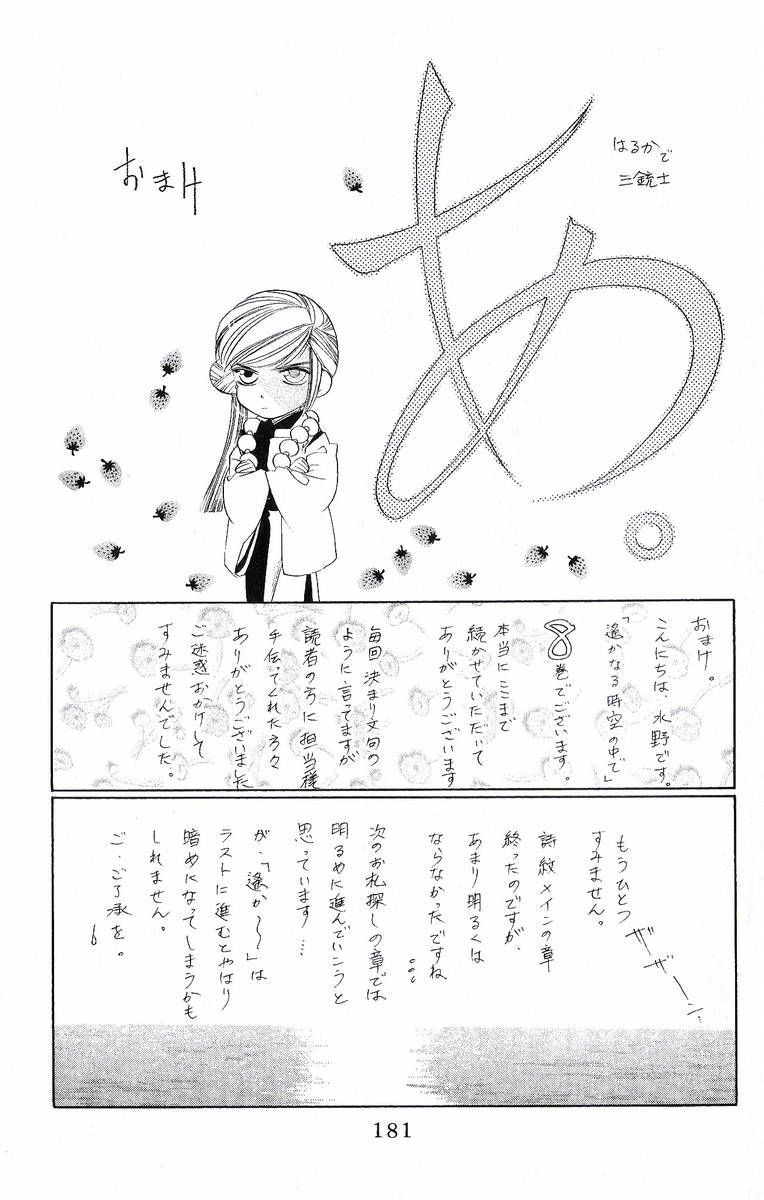 はるかで
三銃士
あ。
おまけ
おまけ。
こんにちは、水野です。
「遙かなる時空の中で」
8巻でございます。
本当にここまで
続かせていただいて
ありがとうございます
毎回決まり文句の
ように言ってますが
読者の方に担当様
手伝ってくれた方々
ありがとうございました
ご迷惑おかけして
すみませんでした。
もうひとつ
すみません。
ザザーン…
詩紋メインの章
終ったのですが、
あまり明るくは
ならなかったですね
…
次のお札探しの章では
明るめに進んでいこうと
思っています…
が、「遙か～～」は
ラストに進むとやはり
暗めになってしまうかも
しれません。
ご、ご了承を。
181